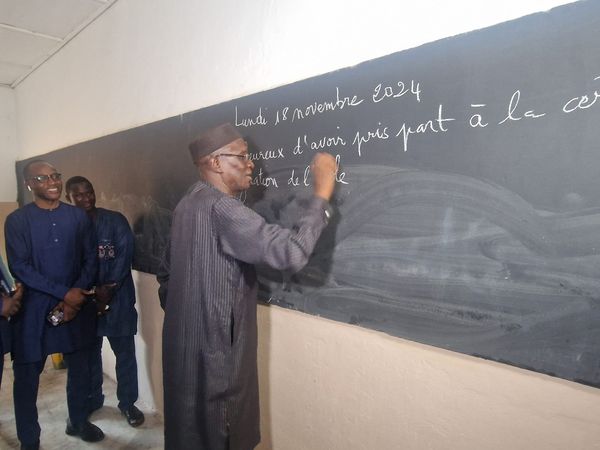 Lundi 18 novembre 2024
eureux d'avoir pris part à la cér
ation de l'